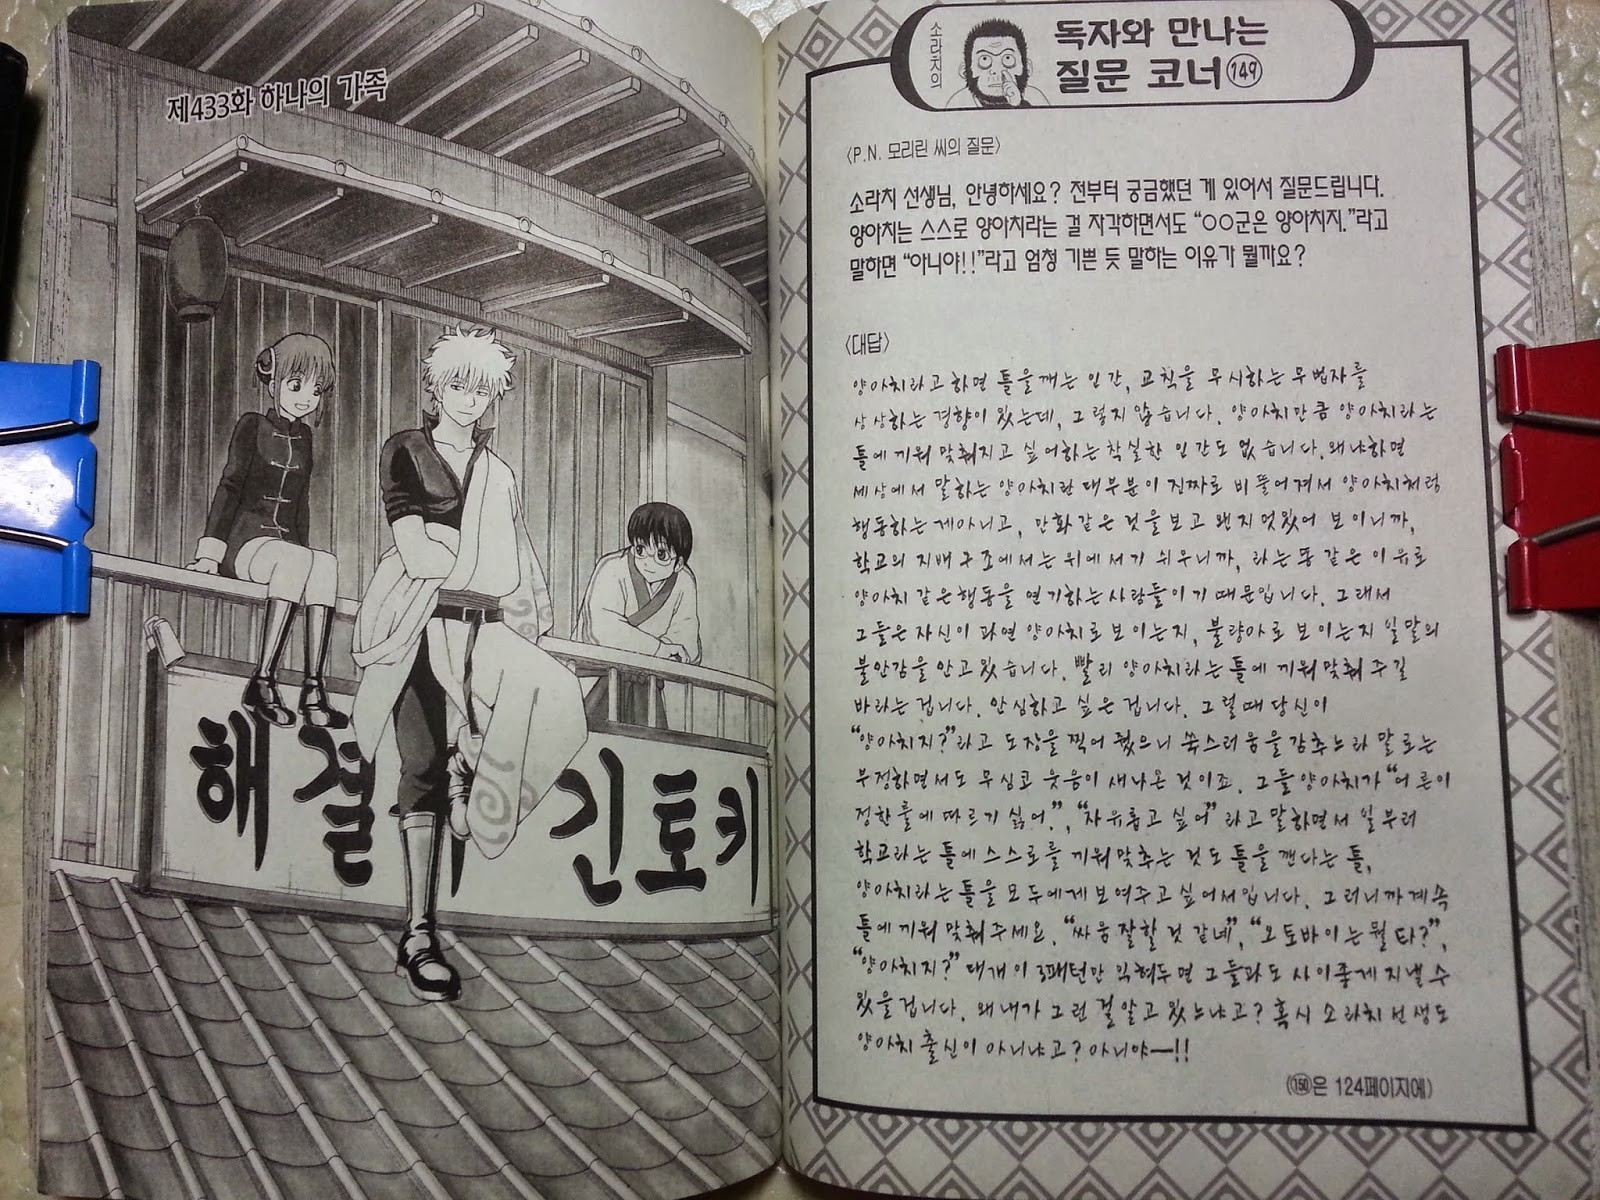 제433화 하나의 가족
해결 긴토키
소라치의
독자와 만나는
질문 코너 149
〈P.N. 모리린 씨의 질문〉
소라치 선생님, 안녕하세요? 전부터 궁금했던 게 있어서 질문드립니다.
양아치는 스스로 양아치라는 걸 자각하면서도 “○○군은 양아치지.”라고
말하면 “아니야!!”라고 엄청 기쁜 듯 말하는 이유가 뭘까요?
〈대답〉
양아치라고 하면 틀을 깨는 인간, 교칙을 무시하는 무법자를
상상하는 경향이 있는데, 그렇지 않습니다. 양아치만큼 양아치라는
틀에 끼워 맞춰지고 싶어하는 착실한 인간도 없습니다. 왜냐하면
세상에서 말하는 양아치란 대부분이 진짜로 비뚤어져서 양아치처럼
행동하는 게 아니고, 만화 같은 것을 보고 왠지 멋있어 보이니까,
학교의 지배 구조에서는 위에 서기 쉬우니까, 라는 똥 같은 이유로
양아치 같은 행동을 연기하는 사람들이기 때문입니다. 그래서
그들은 자신이 과연 양아치로 보이는지, 불량아로 보이는지 일말의
불안감을 안고 있습니다. 빨리 양아치라는 틀에 끼워 맞춰 주길
바라는 겁니다. 안심하고 싶은 겁니다. 그럴 때 당신이
“양아치지?”라고 도장을 찍어 줬으니 쑥스러움을 감추느라 말로는
부정하면서도 무심코 웃음이 새나온 것이죠. 그들 양아치가 “어른이
정한 룰에 따르기 싫어.”, “자유롭고 싶어”라고 말하면서 일부러
학교라는 틀에 스스로를 끼워 맞추는 것도 틀을 깬다는 틀,
양아치라는 틀을 모두에게 보여주고 싶어서입니다. 그러니까 계속
틀에 끼워 맞춰 주세요. “싸움 잘할 것 같네”, “오토바이는 뭘 타?”,
“양아치지?” 대개 이 3패턴만 익혀두면 그들과도 사이좋게 지낼 수
있을 겁니다. 왜 내가 그런 걸 알고 있느냐고? 혹시 소라치 선생도
양아치 출신이 아니냐고? 아니야—!!
(150은 124페이지에)